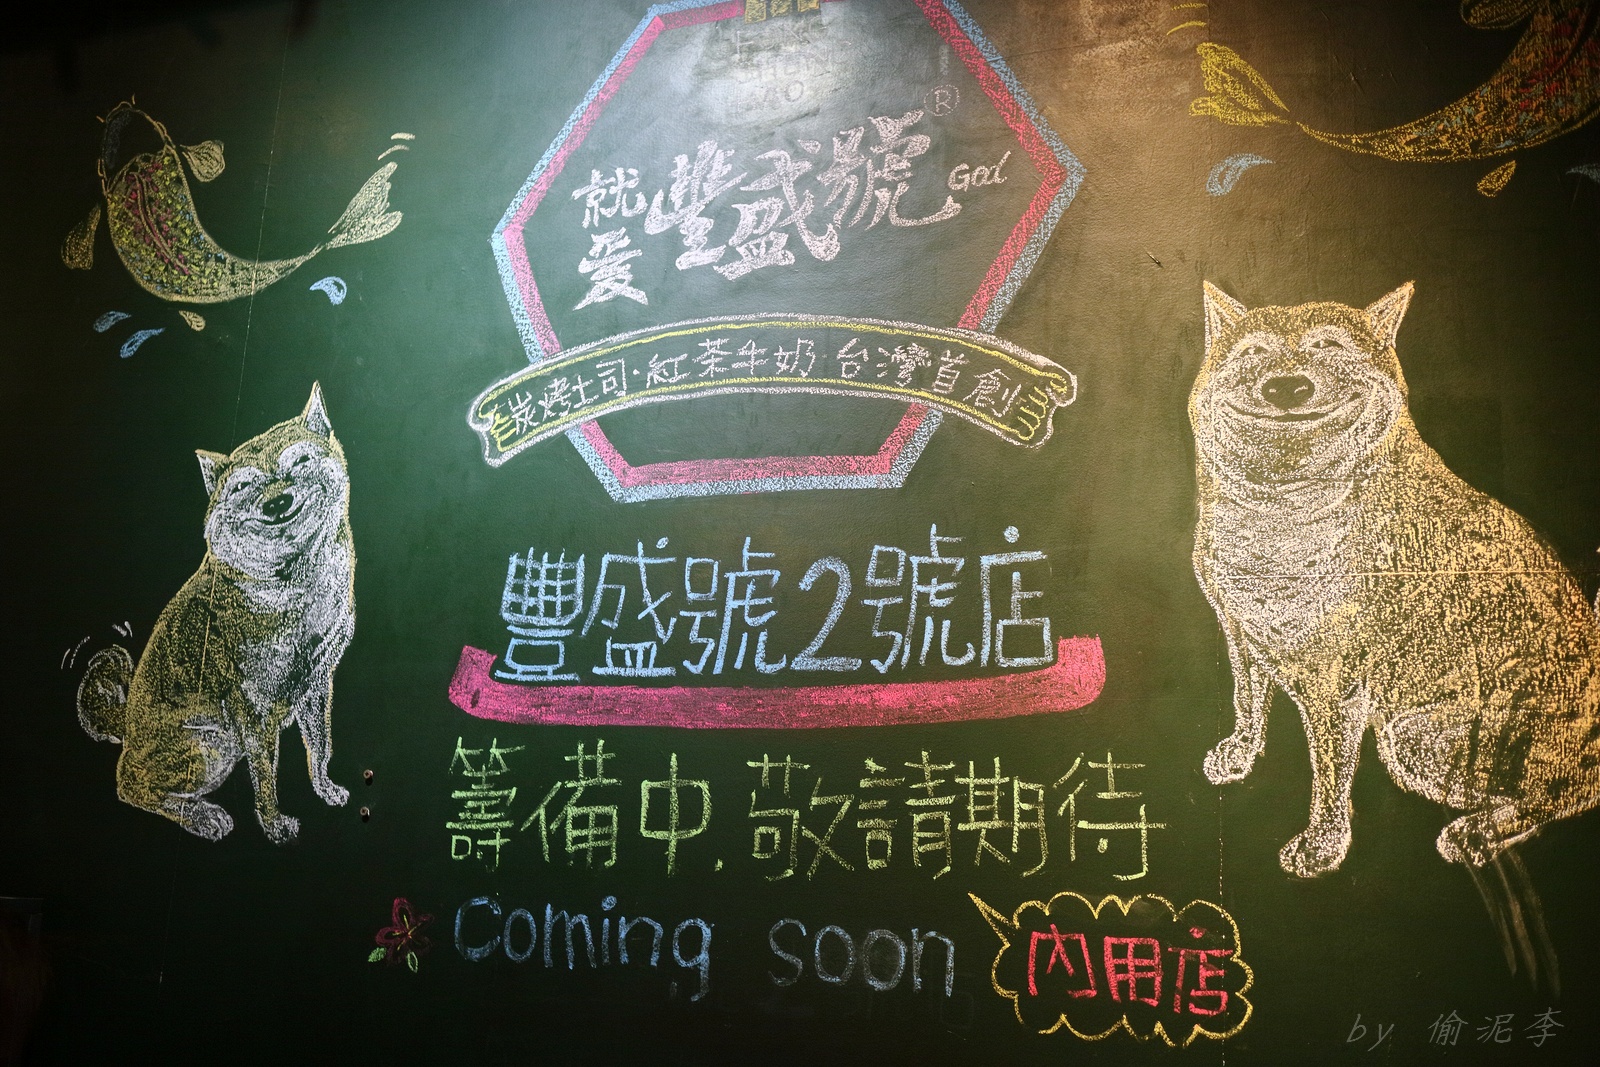 就愛豐盛號® God
炭烤土司·紅茶牛奶 台灣首創
豐盛號2號店
籌備中.敬請期待
Coming soon
內用店
by 偷泥李